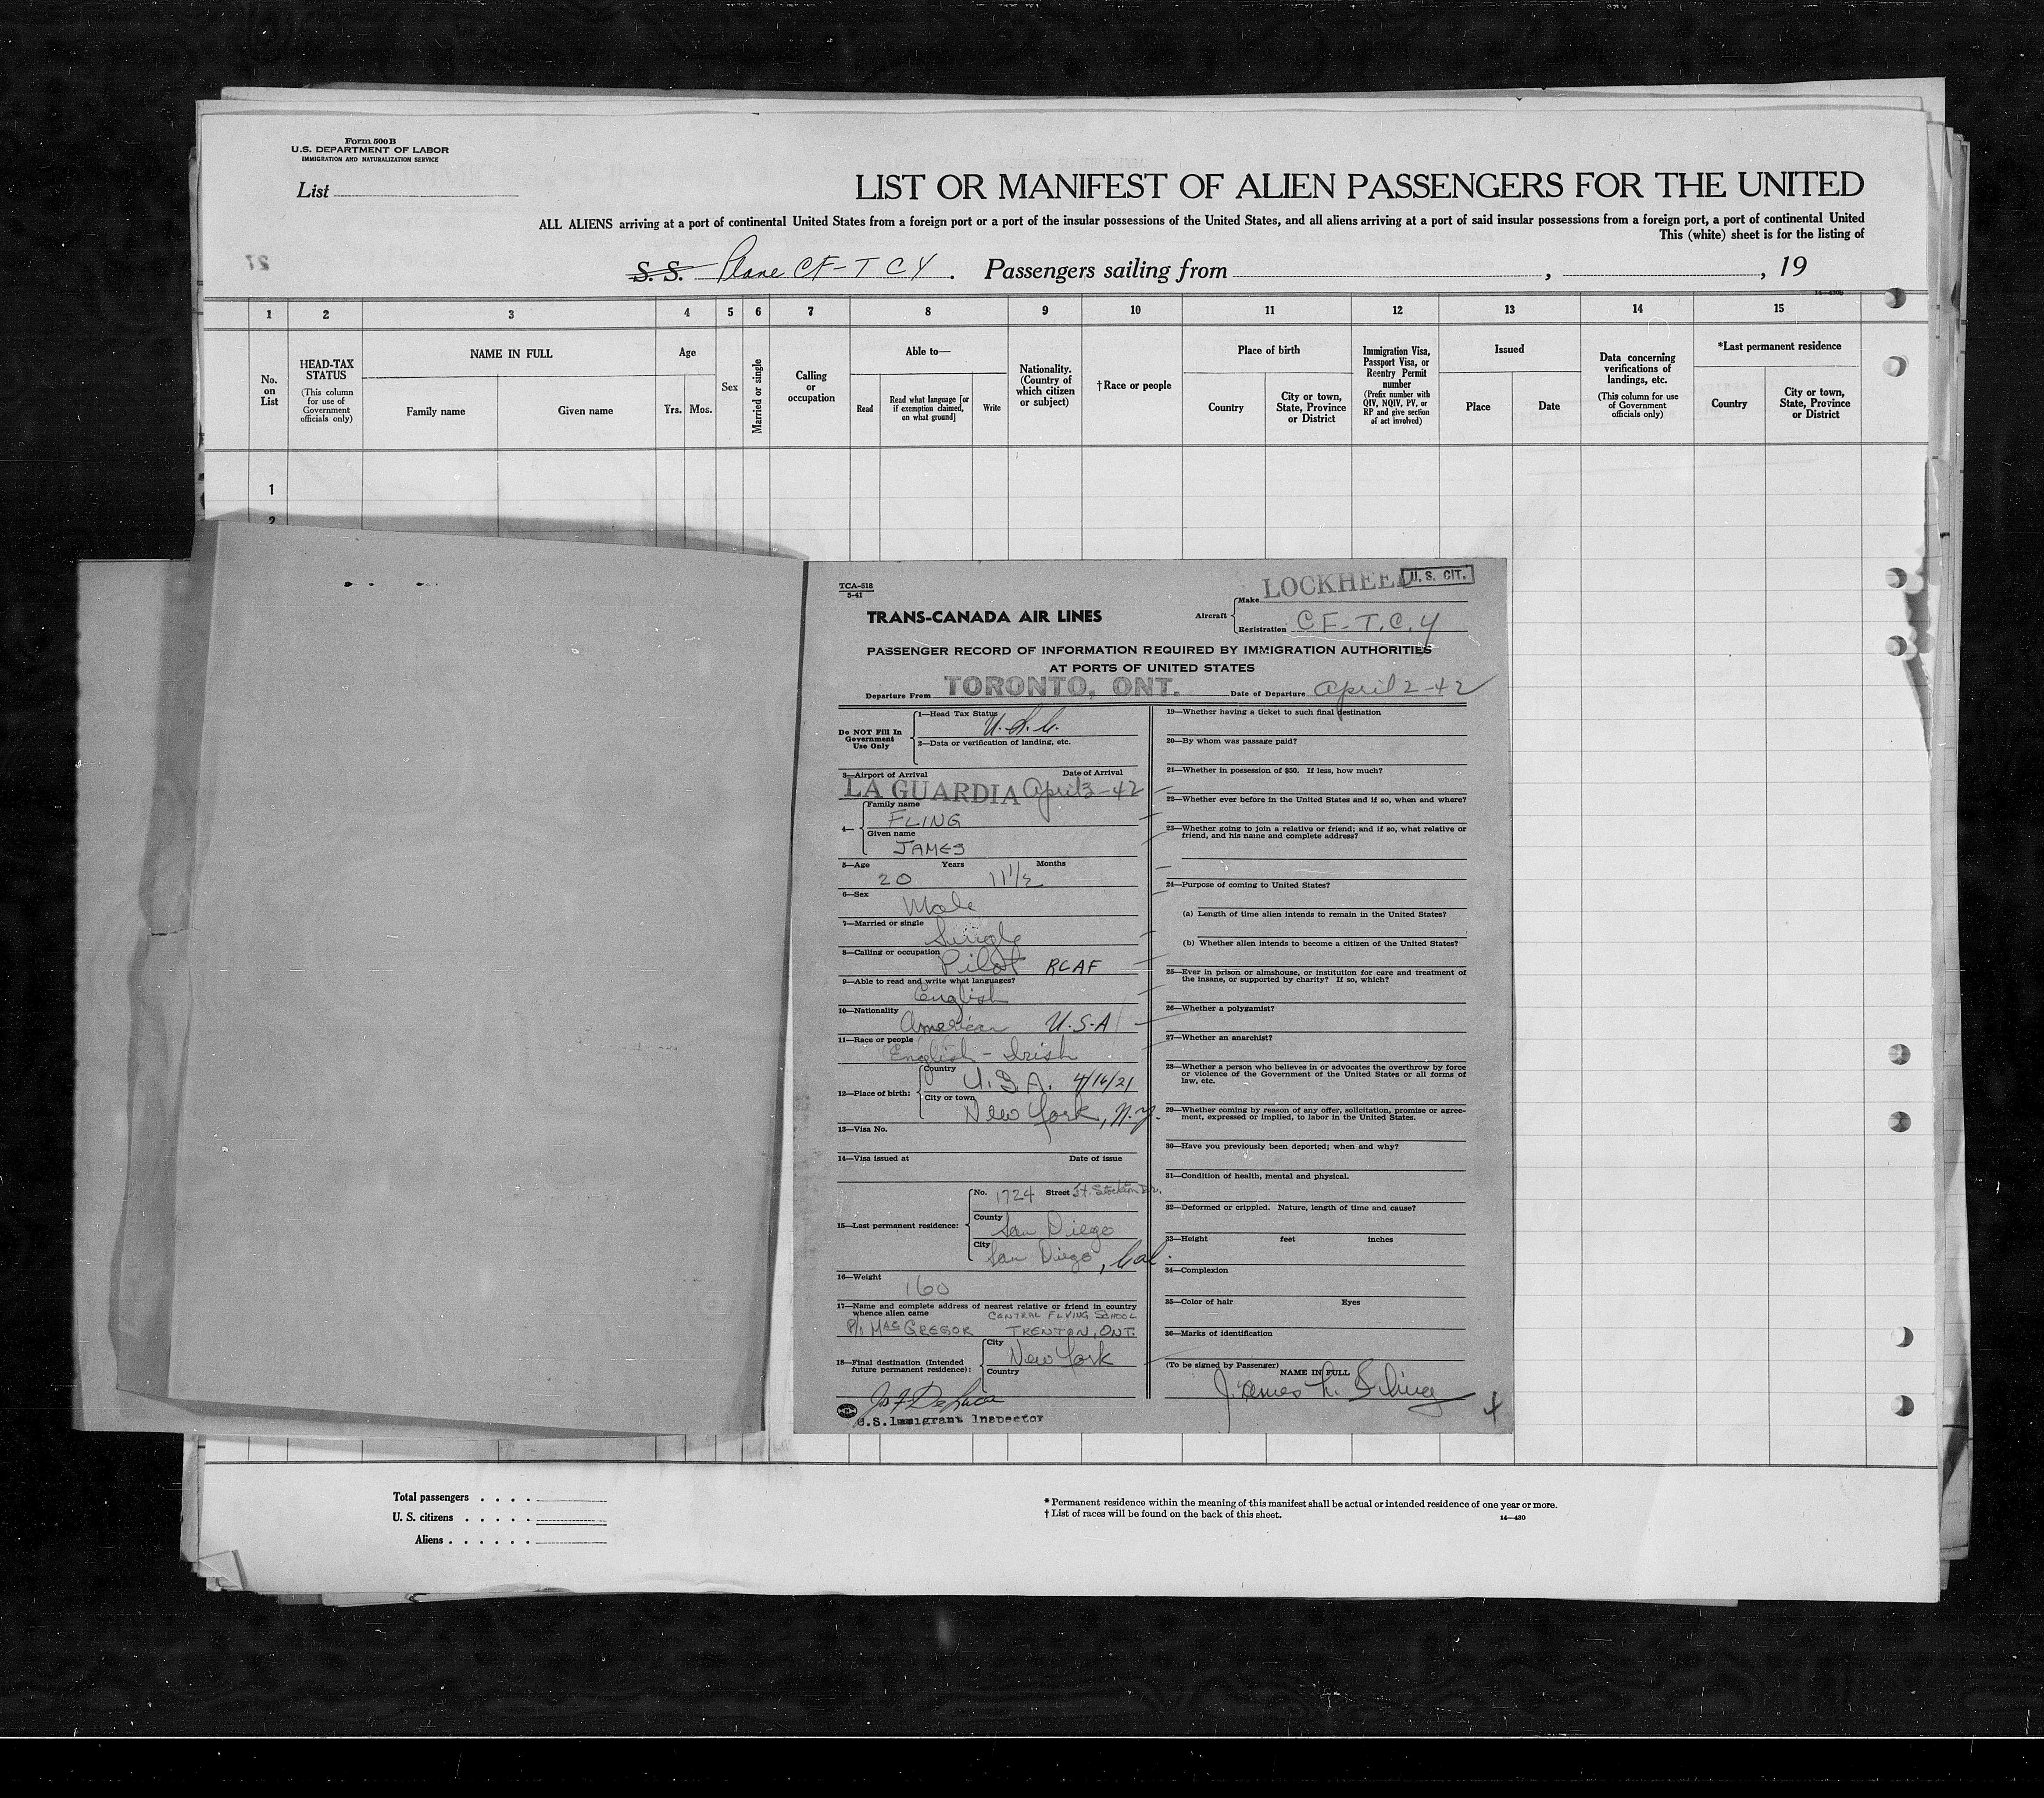 Form 500 B
U.S. DEPARTMENT OF LABOR
IMMIGRATION AND NATURALIZATION SERVICE
List
LIST OR MANIFEST OF ALIEN PASSENGERS FOR THE UNITED
ALL ALIENS arriving at a port of continental United States from a foreign port or a port of the insular possessions of the United States, and all aliens arriving at a port of said insular possessions from a foreign port, a port of continental United
This (white) sheet is for the listing of
27
S. S. Plane CF-TCY. Passengers sailing from , , 19
14—430b
1 2 3 4 5 6 7 8 9 10 11 12 13 14 15
No. on List
HEAD-TAX STATUS
(This column for use of Government officials only)
NAME IN FULL
Family name Given name
Age
Yrs. Mos.
Sex
Married or single
Calling or occupation
Able to—
Read
Read what language [or if exemption claimed, on what ground]
Write
Nationality. (Country of which citizen or subject)
†Race or people
Place of birth
Country
City or town, State, Province or District
Immigration Visa, Passport Visa, or Reentry Permit number
(Prefix number with QIV, NQIV, PV, or RP and give section of act involved)
Issued
Place Date
Data concerning verifications of landings, etc.
(This column for use of Government officials only)
*Last permanent residence
Country
City or town, State, Province or District
1
2
TCA-518
5-41
TRANS-CANADA AIR LINES
Aircraft
Make LOCKHEED
U. S. CIT.
Registration CF-T.C.Y
PASSENGER RECORD OF INFORMATION REQUIRED BY IMMIGRATION AUTHORITIES
AT PORTS OF UNITED STATES
Departure From TORONTO, ONT. Date of Departure April 2-42
Do NOT Fill In Government Use Only
1—Head Tax Status U.S.C.
2—Data or verification of landing, etc.
3—Airport of Arrival Date of Arrival
LA GUARDIA April 3-42
4—
Family name
FLING
Given name
JAMES
5—Age Years Months
20 11 1/2
6—Sex
Male
7—Married or single
Single
8—Calling or occupation
Pilot RCAF
9—Able to read and write what languages?
English
10—Nationality
American U.S.A
11—Race or people
English - Irish
12—Place of birth:
Country
U.S.A. 4/16/21
City or town
New York, N.Y.
13—Visa No.
14—Visa issued at Date of issue
15—Last permanent residence:
No. 1724 Street Ft. Stockton Dr.
County
San Diego
City
San Diego, Cal.
16—Weight
160
17—Name and complete address of nearest relative or friend in country
whence alien came CENTRAL FLYING SCHOOL
P/O MACGREGOR TRENTON, ONT.
18—Final destination (Intended future permanent residence):
City
New York
Country
U.S. Immigrant Inspector
19—Whether having a ticket to such final destination
20—By whom was passage paid?
21—Whether in possession of $50. If less, how much?
22—Whether ever before in the United States and if so, when and where?
23—Whether going to join a relative or friend; and if so, what relative or
friend, and his name and complete address?
24—Purpose of coming to United States?
(a) Length of time alien intends to remain in the United States?
(b) Whether alien intends to become a citizen of the United States?
25—Ever in prison or almshouse, or institution for care and treatment of
the insane, or supported by charity? If so, which?
26—Whether a polygamist?
27—Whether an anarchist?
28—Whether a person who believes in or advocates the overthrow by force
or violence of the Government of the United States or all forms of
law, etc.
29—Whether coming by reason of any offer, solicitation, promise or agree-
ment, expressed or implied, to labor in the United States.
30—Have you previously been deported; when and why?
31—Condition of health, mental and physical.
32—Deformed or crippled. Nature, length of time and cause?
33—Height feet inches
34—Complexion
35—Color of hair Eyes
36—Marks of identification
(To be signed by Passenger)
NAME IN FULL
James L. Fling
Total passengers . . . .
U. S. citizens . . . . .
Aliens . . . . . .
* Permanent residence within the meaning of this manifest shall be actual or intended residence of one year or more.
† List of races will be found on the back of this sheet.
14—430